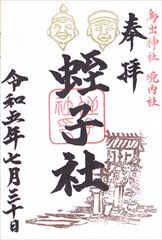 鳥出神社 境内社
奉拝
蛭子社
令和五年七月三十日